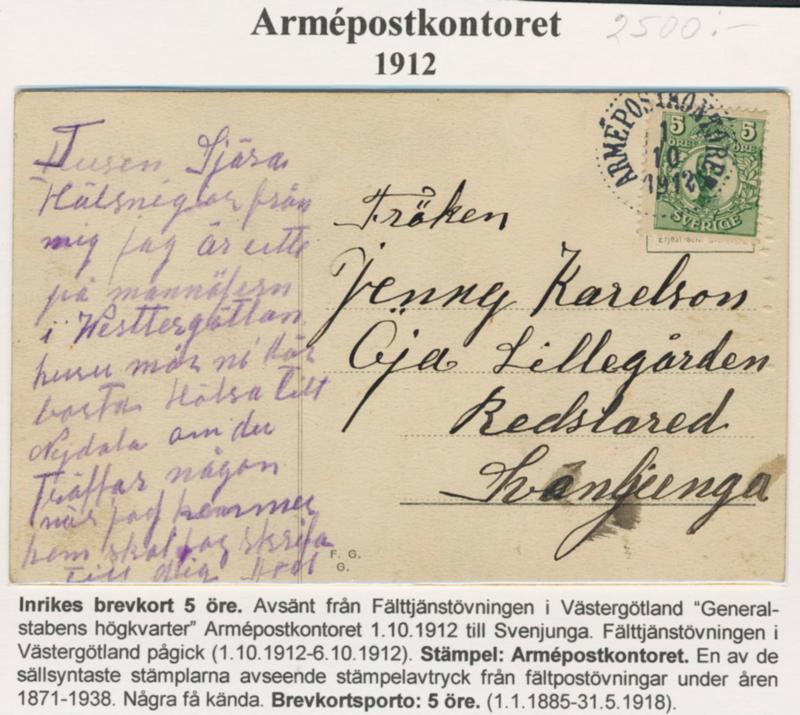 Armépostkontoret
2500:-
1912
Tusen Sjära
Hälsnigar från
mig jag är utte
på mannöfern
i Westtergöttlan
huru mår ni där
borta Hälsa till
Nydala om du
Träffar någon
när jag kommer
hem skal jag skrifa
till dig
ARMÉPOSTKONTORET
1
10
1912
5 5
ÖRE ÖRE
SVERIGE
Fröken
Jenny Karelson
Öja Lillegården
Redslared
Svenljunga
F. G.
G.
Inrikes brevkort 5 öre. Avsänt från Fälttjänstövningen i Västergötland “General-
stabens högkvarter” Armépostkontoret 1.10.1912 till Svenjunga. Fälttjänstövningen i
Västergötland pågick (1.10.1912-6.10.1912). Stämpel: Armépostkontoret. En av de
sällsyntaste stämplarna avseende stämpelavtryck från fältpostövningar under åren
1871-1938. Några få kända. Brevkortsporto: 5 öre. (1.1.1885-31.5.1918).